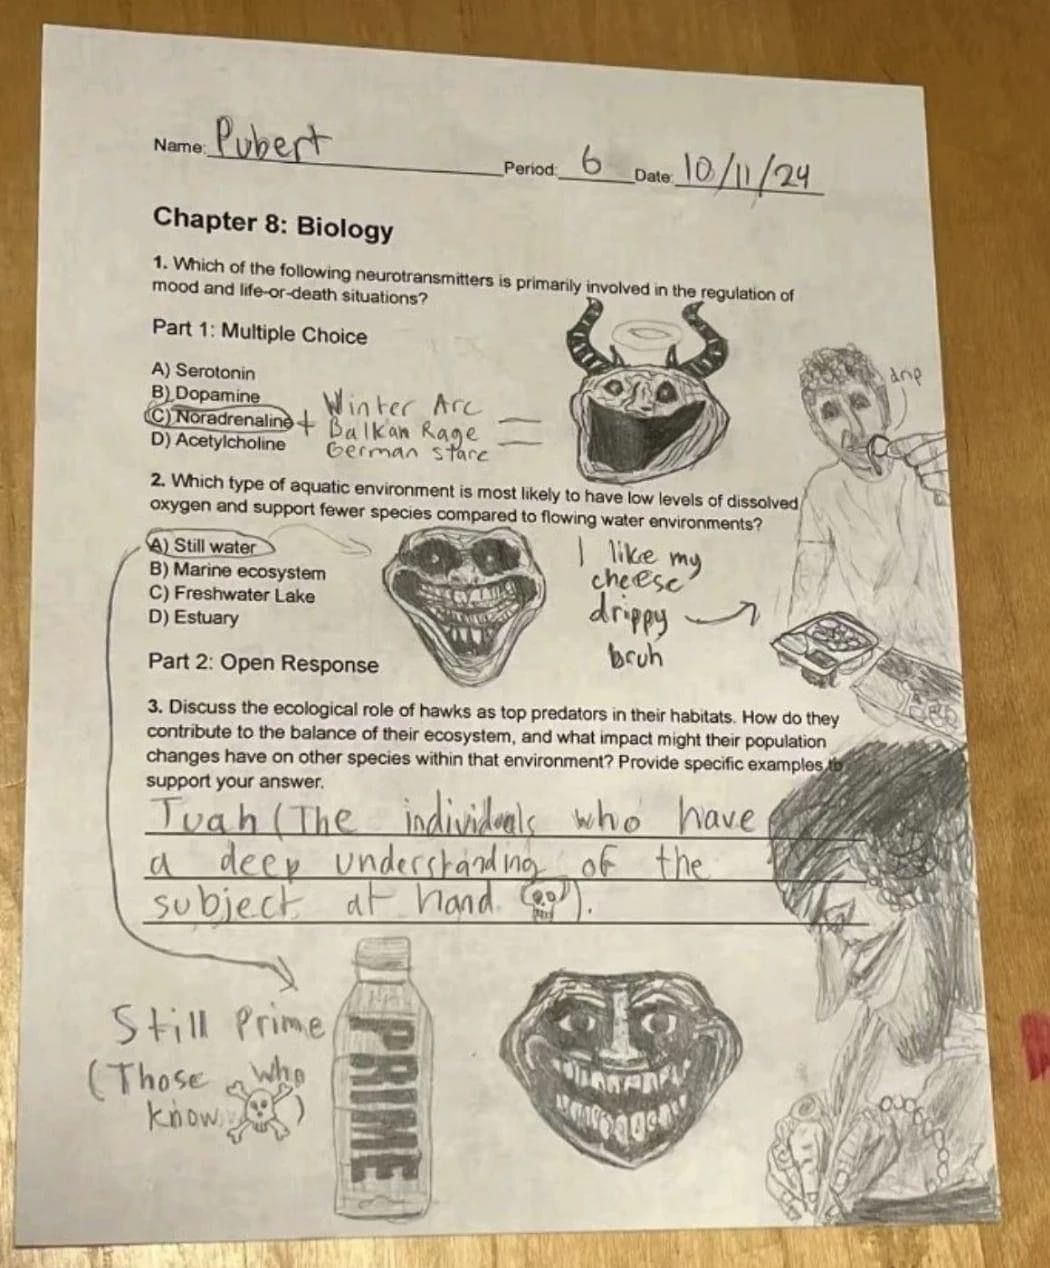 Name: Pubert
Period: 6 Date: 10/11/24
Chapter 8: Biology
1. Which of the following neurotransmitters is primarily involved in the regulation of
mood and life-or-death situations?
Part 1: Multiple Choice
A) Serotonin
B) Dopamine
C) Noradrenaline +
D) Acetylcholine
Winter Arc
Balkan Rage =
German stare
drip
2. Which type of aquatic environment is most likely to have low levels of dissolved
oxygen and support fewer species compared to flowing water environments?
A) Still water
B) Marine ecosystem
C) Freshwater Lake
D) Estuary
I like my
cheese
drippy
bruh
Part 2: Open Response
3. Discuss the ecological role of hawks as top predators in their habitats. How do they
contribute to the balance of their ecosystem, and what impact might their population
changes have on other species within that environment? Provide specific examples to
support your answer.
Tuah (The individuals who have
a deep understanding of the
subject at hand ).
Still Prime
(Those who
know )
PRIME